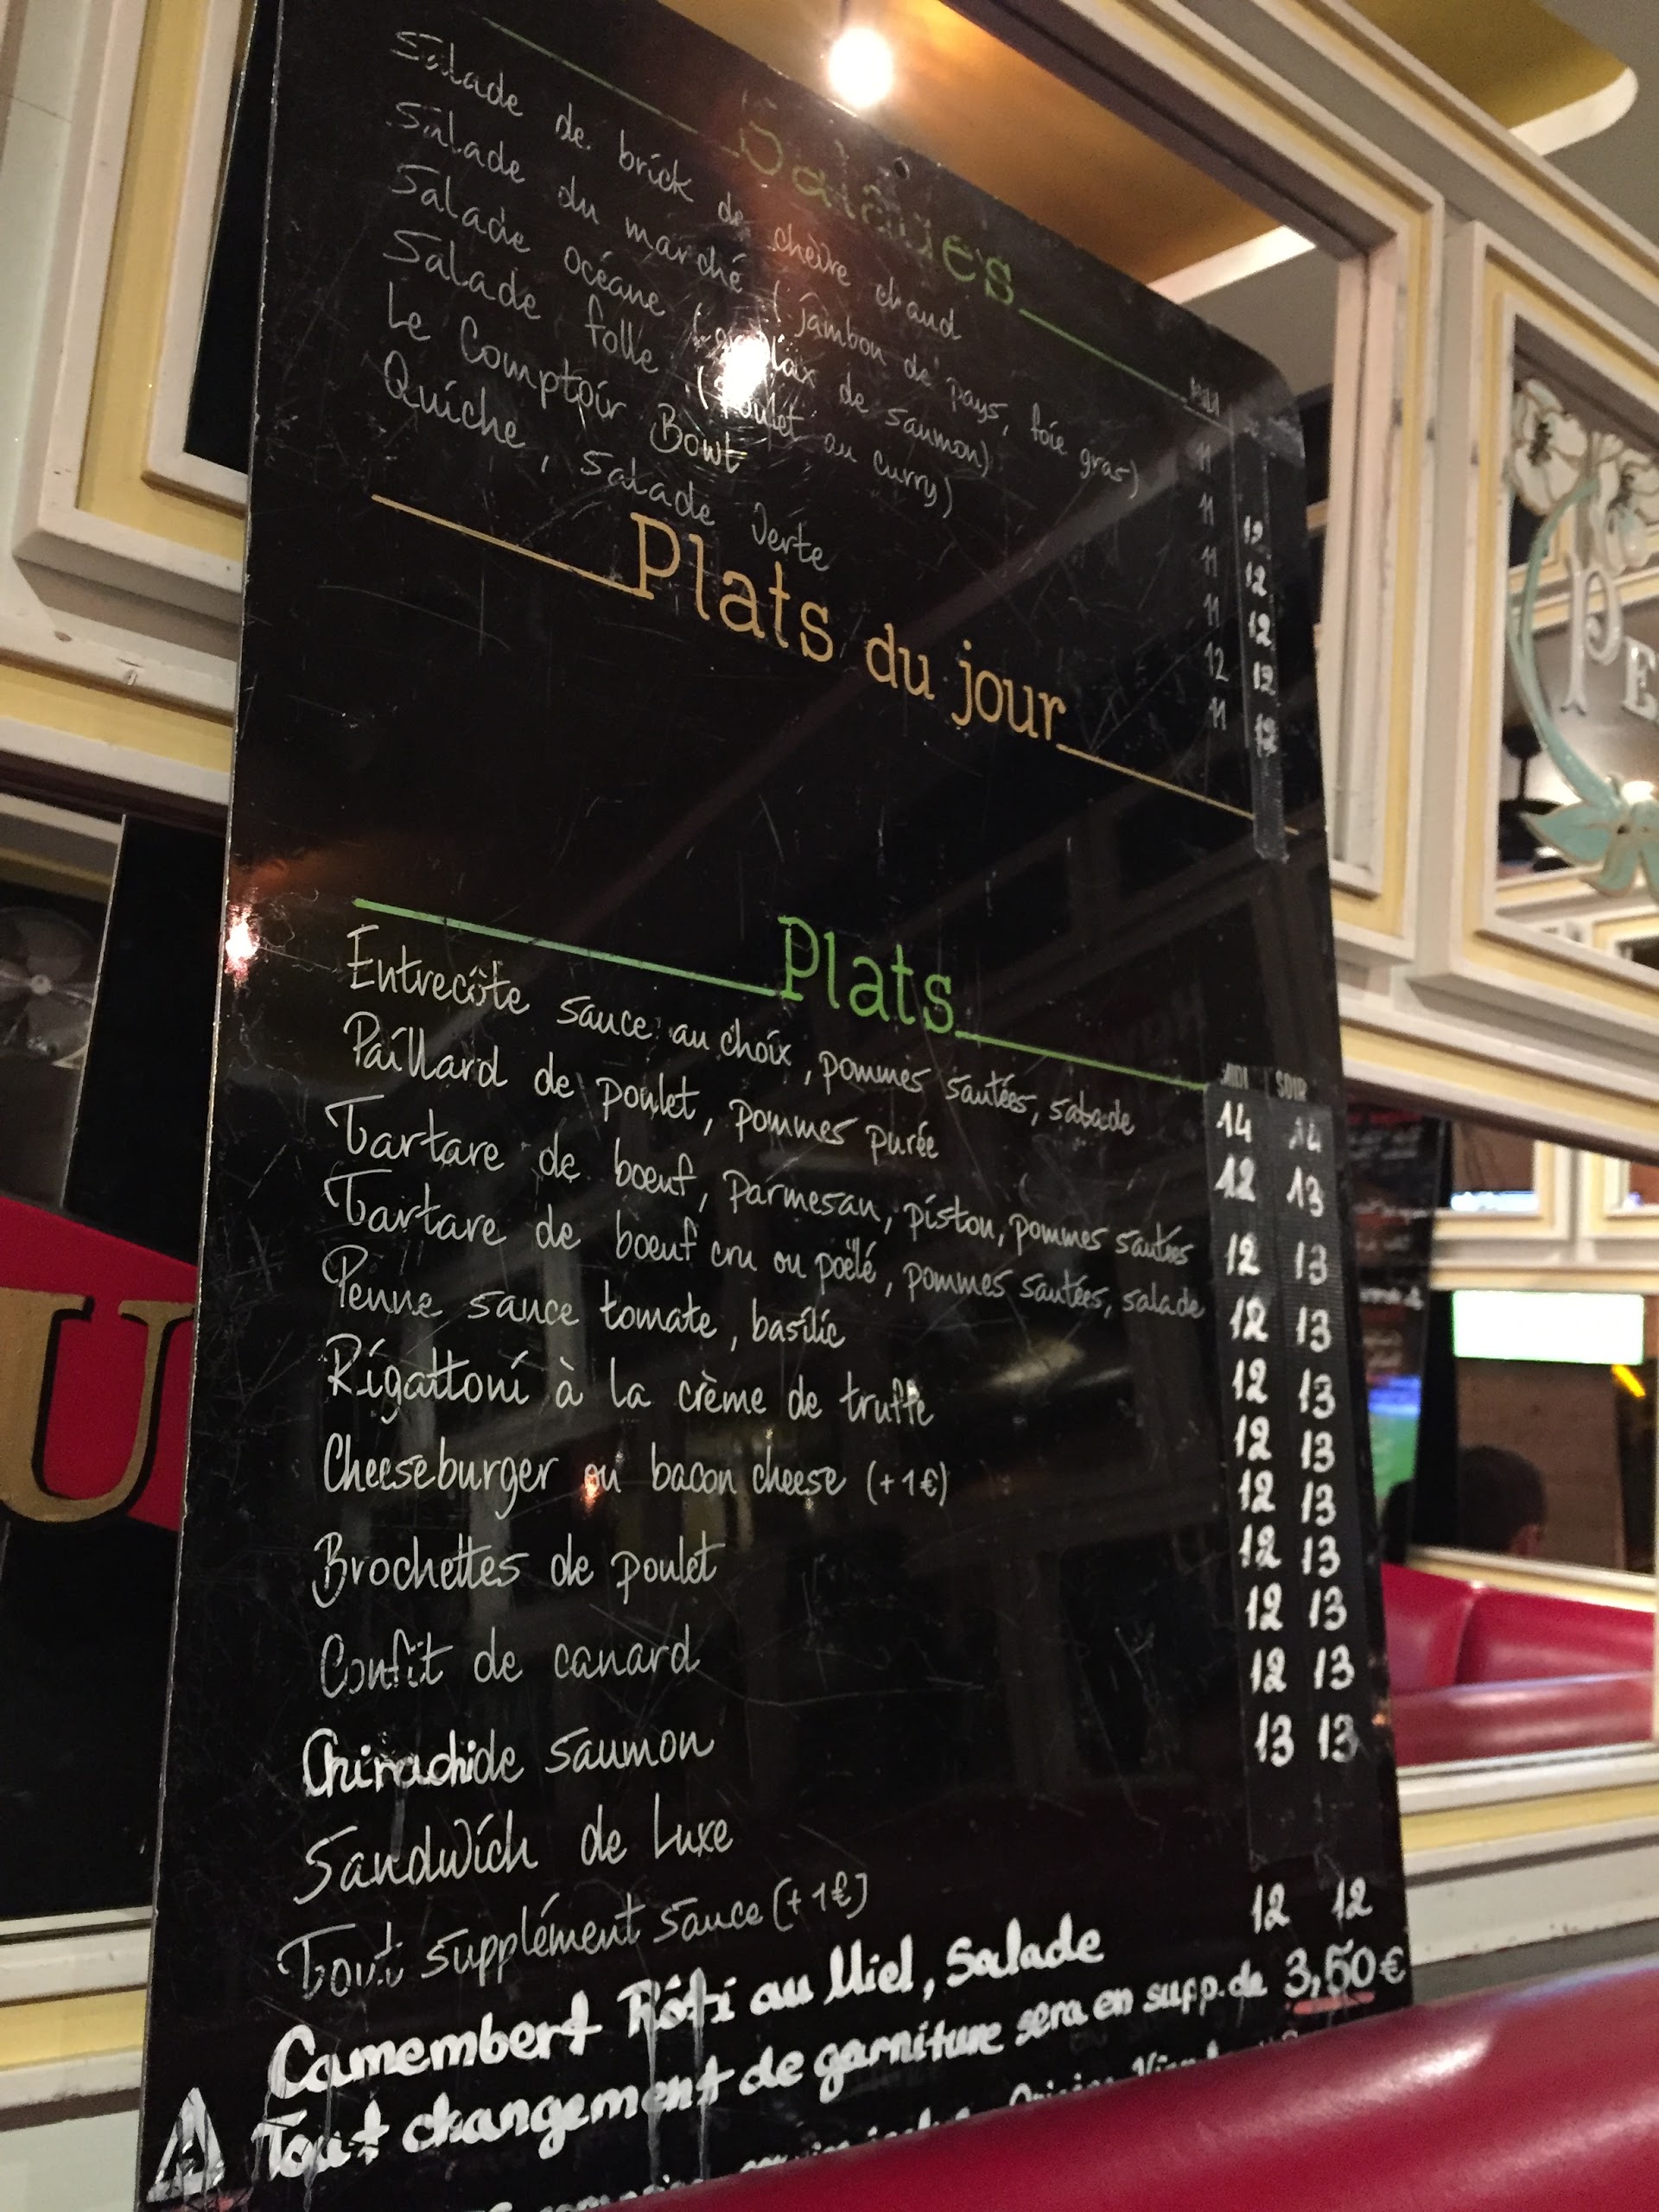 Salades
MIDI
Salade de brick de chèvre chaud 11
Salade du marché (jambon de pays, foie gras) 11 12
Salade océane (gravlax de saumon) 11 12
Salade folle (poulet au curry) 11 12
Le Comptoir Bowl 12 12
Quiche, salade verte 11 12
Plats du jour
Plats
MIDI SOIR
Entrecôte sauce au choix, pommes sautées, salade 14 14
Paillard de poulet, pommes purée 12 13
Tartare de bœuf, parmesan, piston, pommes sautées 12 13
Tartare de bœuf cru ou poëlé, pommes sautées, salade 12 13
Penne sauce tomate, basilic 12 13
Rigattoni à la crème de truffe 12 13
Cheeseburger ou bacon cheese (+1€) 12 13
Brochettes de poulet 12 13
Confit de canard 12 13
Chirachide saumon 12 13
Sandwich de Luxe 13 13
Tout supplément sauce (+1€)
Camembert Rôti au Miel, Salade 12 12
Tout changement de garniture sera en supp. de 3,50€
PE
U